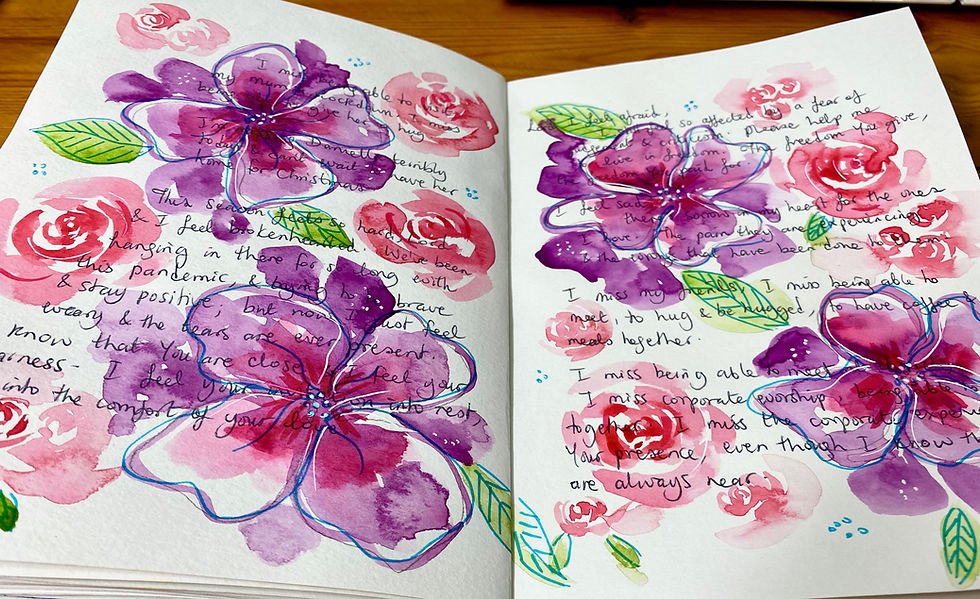 I miss being able to visit
my mum in lockdown, I miss
being able to give her a hug
I'm missing Danielle terribly
today & can't wait to have her
home for Christmas.
This season feels so hard, Lord
& I feel brokenhearted. We've been
hanging in there for so long with
this pandemic, & trying to be brave
& stay positive, but now I just feel
weary & the tears are ever present.
know that You are close. I feel your
arness -
I feel your into rest,
into the comfort of your
Lord I feel afraid,
so affected by a fear of
& criticism. Please help me
to live in freedom - the freedom You give,
the freedom You paid for.
I feel sad, there's sorrow in my heart for the ones
I love & the pain they are experiencing
& the wrongs that have been done to
I miss my friends, I miss being able to
meet, to hug & be hugged, to have coffee &
meals together.
I miss being able to meet
I miss corporate worship, being able to
together. I miss the corporate
Your presence even though I know
are always near